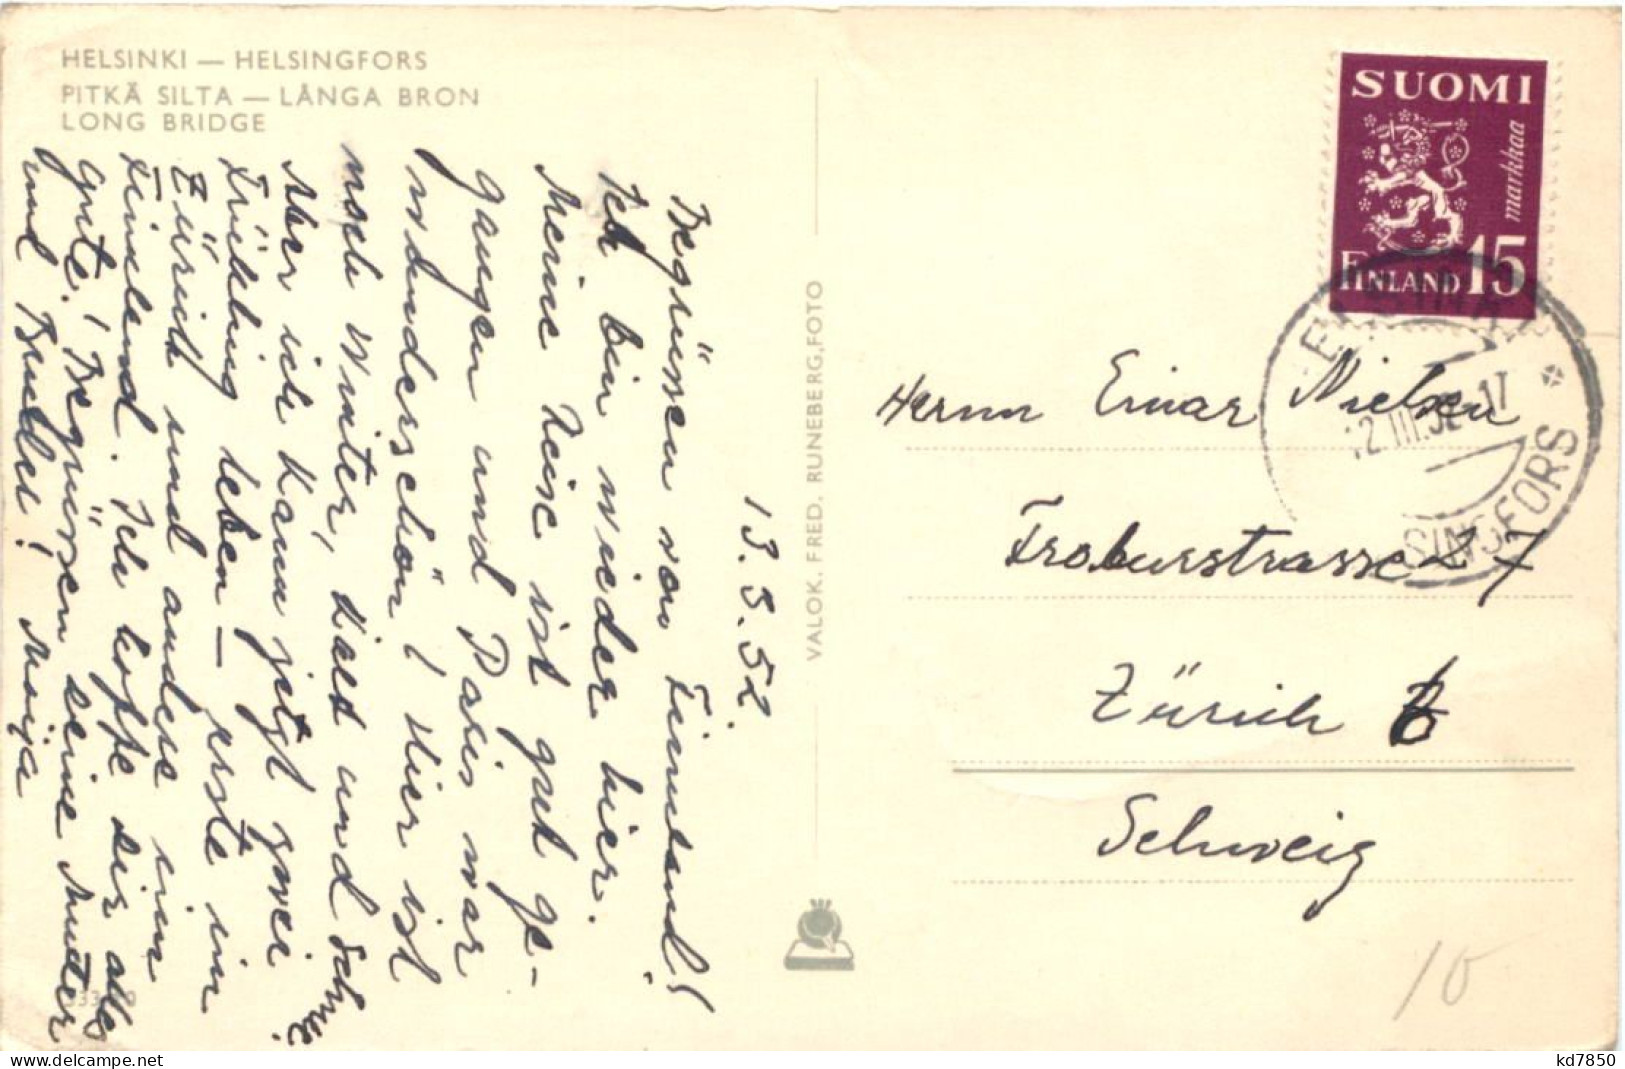 HELSINKI — HELSINGFORS
PITKÄ SILTA — LÅNGA BRON
LONG BRIDGE
13.3.52.
Begrüssen von Finnland!
Ich bin wieder hier.
Meine Reise ist gut ge-
gangen und Paris war
wunderschön! Hier ist
noch Winter, Kalt und Schnee.
Aber ich kann jetzt zwei
Frühling leben — erste in
Zürich und andere in
Finnland. Ich hoffe dir alles
gute! Begrüssen deine Mutter
und Bruder! Maija
333
VALOK. FRED. RUNEBERG, FOTO
SUOMI
markkaa
FINLAND 15
12.III.52-17
SINGFORS
Herrn Einar Nielsen
Froburstrasse 27
Zürich 6
Schweiz
10
kd7850
delcampe.net